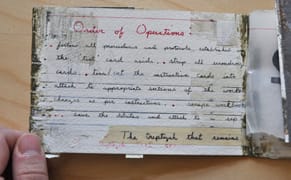 Order of Operations
.. follow all procedures and protocols established
the "first" card reads .. strip all remaining
cards .. line/cut the instructive cards into
attach to appropriate sections of the works
changes as per instructions ..
.. save the detritus and attach to a
The triptych that remains